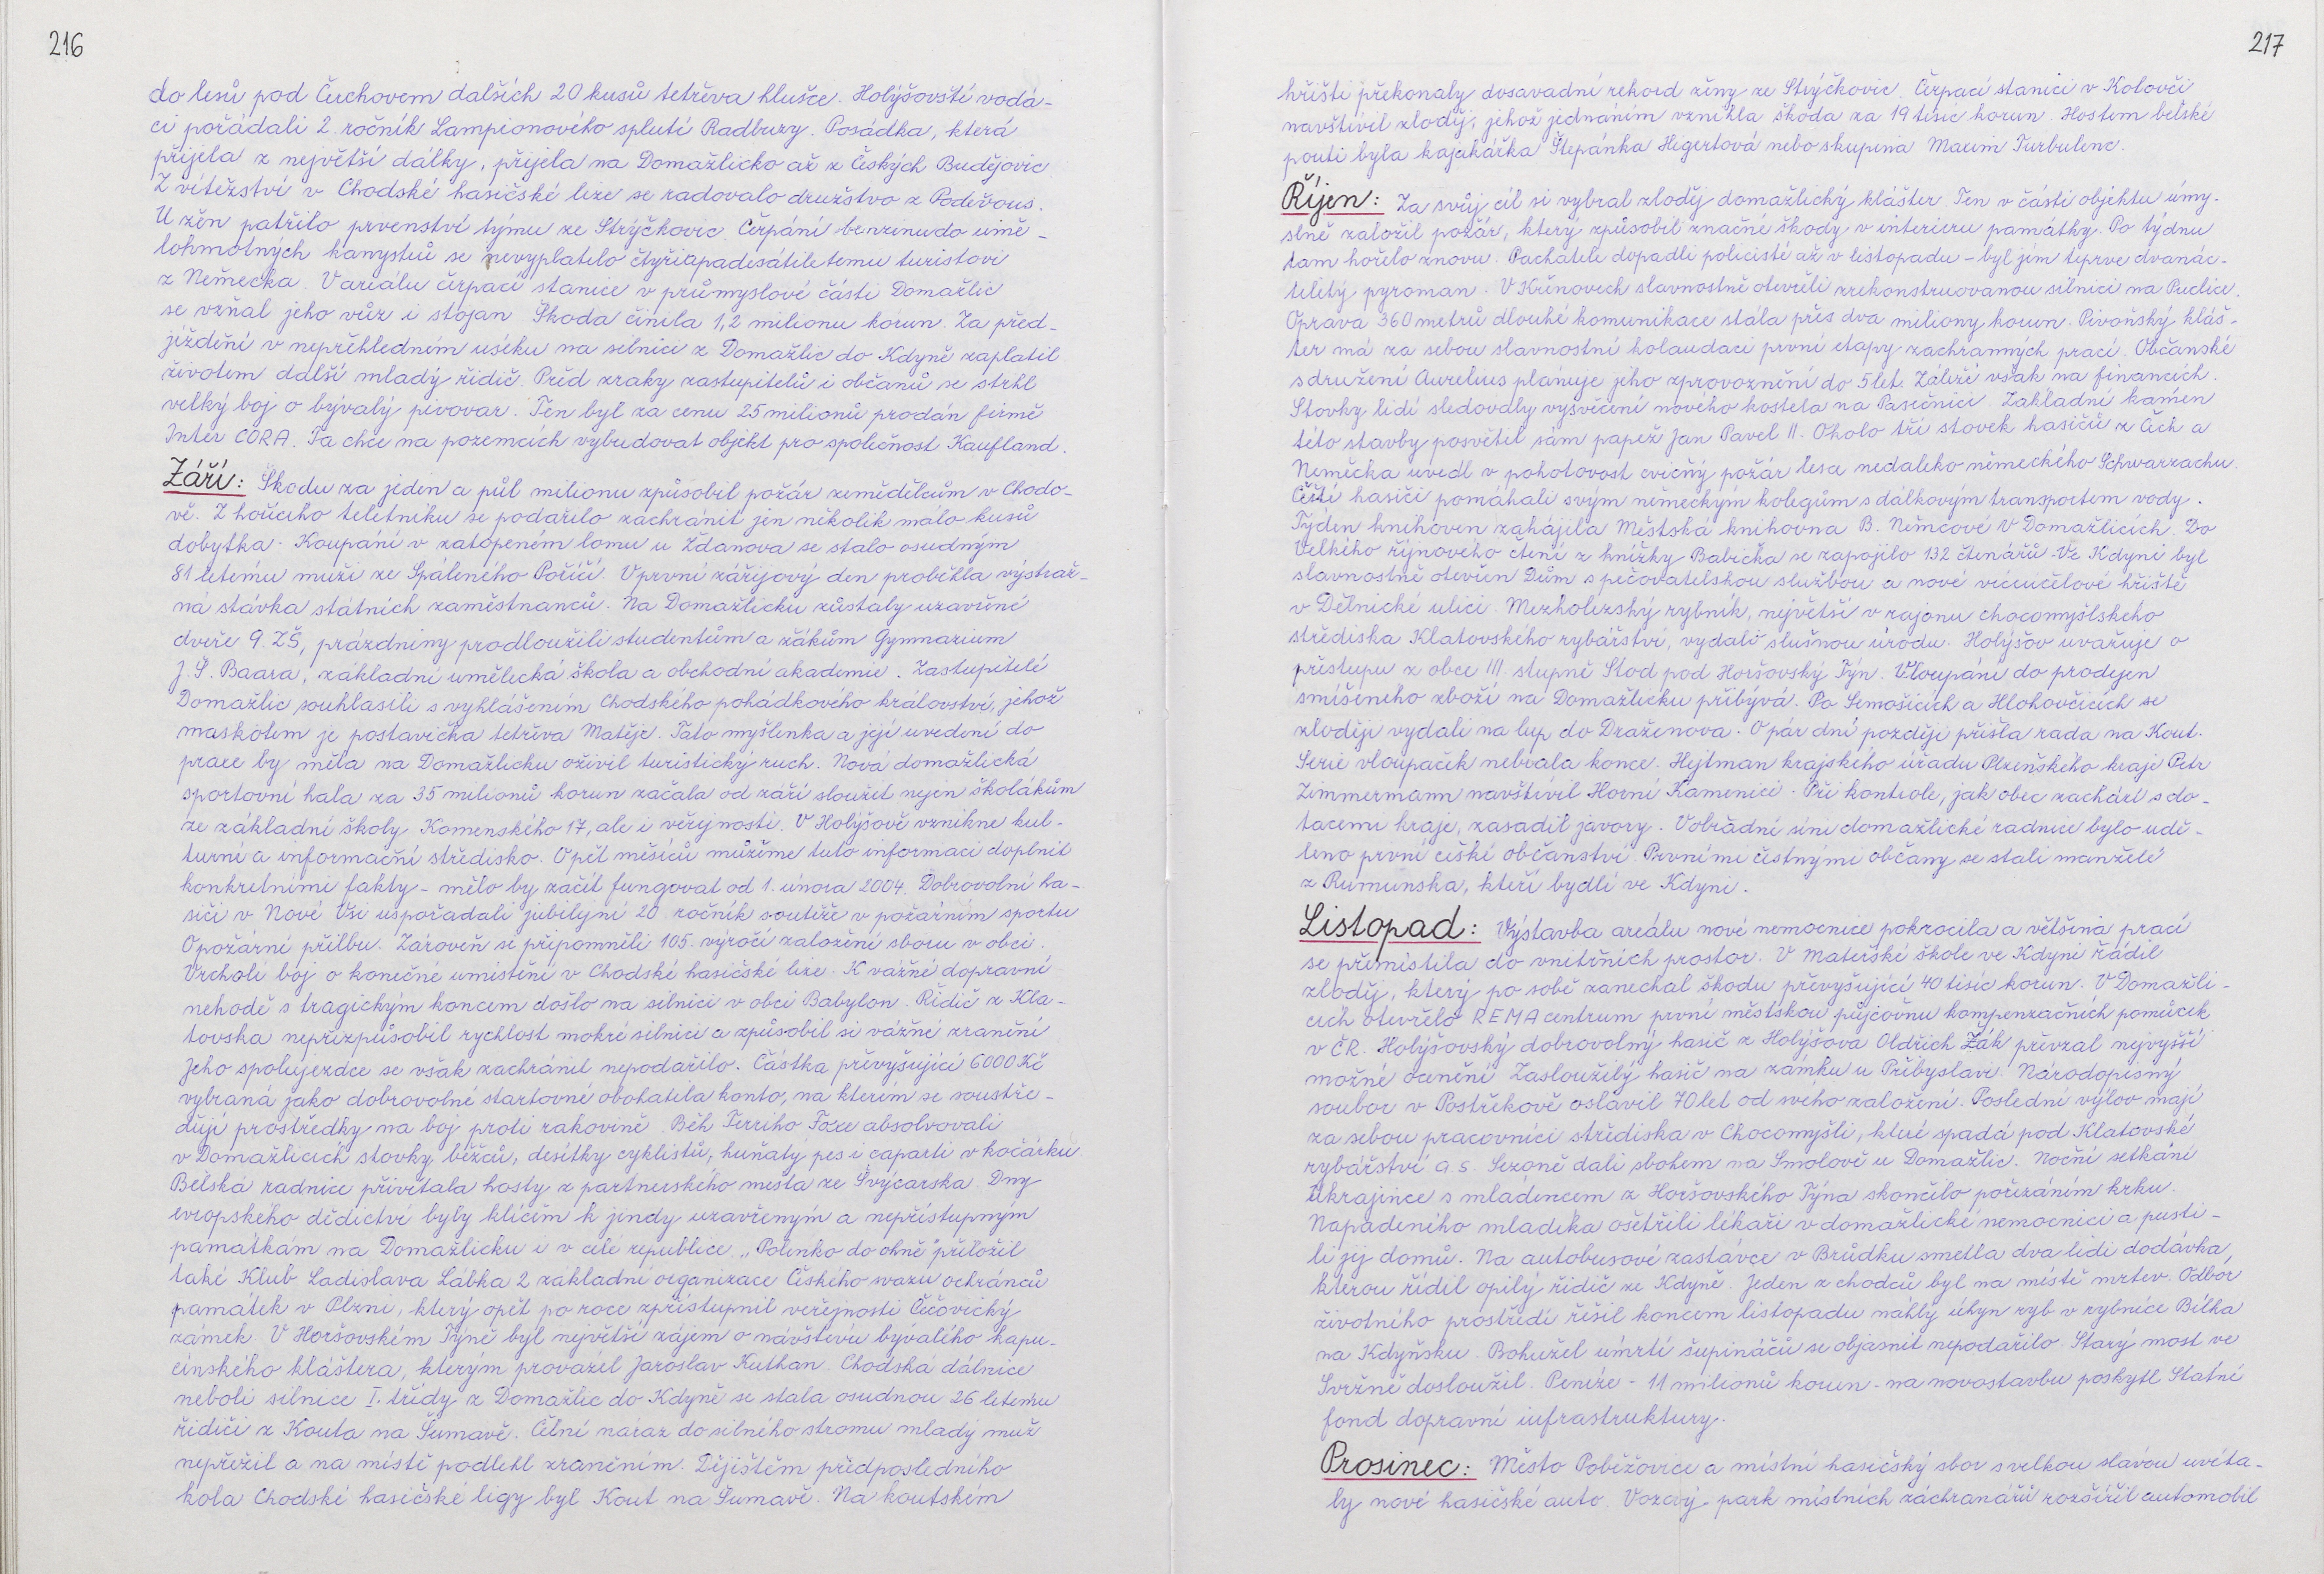 216
do lesů pod Čerchovem dalších 20 kusů tetřeva hlušce. Holýšovští vodá-
ci pořádali 2. ročník Lampionového splutí Radbuzy. Posádka, která
přijela z největší dálky, přijela na Domažlicko až z Českých Budějovic.
Z vítězství v Chodské hasičské lize se radovalo družstvo z Poděvous.
U žen patřilo prvenství týmu ze Strýčkovic. Čerpání benzinu do umě-
lohmotných kanystrů se nevyplatilo čtyřiapadesátiletému turistovi
z Německa. V areálu čerpací stanice v průmyslové části Domažlic
se vzňal jeho vůz i stojan. Škoda činila 1,2 milionu korun. Za před-
jíždění v nepřehledném úseku na silnici z Domažlic do Kdyně zaplatil
životem další mladý řidič. Před zraky zastupitelů i občanů se strhl
velký boj o bývalý pivovar. Ten byl za cenu 25 milionů prodán firmě
Inter CORA. Ta chce na pozemcích vybudovat objekt pro společnost Kaufland.
Září: Škodu za jeden a půl milionu způsobil požár zemědělcům v Chodo-
vě. Z hořícího teletníku se podařilo zachránit jen několik málo kusů
dobytka. Koupání v zatopeném lomu u Ždanova se stalo osudným
81 letému muži ze Spáleného Poříčí. V první zářijový den proběhla výstraž-
ná stávka státních zaměstnanců. Na Domažlicku zůstaly uzavřené
dveře 9 ZŠ, prázdniny prodloužili studentům a žákům Gymnazium
J. Š. Baara, základní umělecká škola a obchodní akademie. Zastupitelé
Domažlic souhlasili s vyhlášením Chodského pohádkového království, jehož
maskotem je postavička tetřeva Matěje. Tato myšlenka a její uvedení do
praxe by měla na Domažlicku oživit turistický ruch. Nová domažlická
sportovní hala za 35 milionů korun začala od září sloužit nejen školákům
ze základní školy Komenského 17, ale i veřejnosti. V Holýšově vznikne kul-
turní a informační středisko. O pět měsíců můžeme tuto informaci doplnit
konkretními fakty - mělo by začít fungovat od 1. února 2004. Dobrovolní ha-
siči v Nové Vsi uspořádali jubilejní 20. ročník soutěže v požárním sportu
O požární přilbu. Zároveň si připomněli 105. výročí založení sboru v obci.
Vrcholí boj o konečné umístění v Chodské hasičské lize. K vážné dopravní
nehodě s tragickým koncem došlo na silnici v obci Babylon. Řidič z Kla-
tovska nepřizpůsobil rychlost mokré silnici a způsobil si vážné zranění.
Jeho spolujezdce se však zachránit nepodařilo. Částka převyšující 6000 Kč
vybraná jako dobrovolné startovné obohatila konto, na kterém se soustře-
ďují prostředky na boj proti rakovině. Běh Terriho Foxe absolvovali
v Domažlicích stovky běžců, desítky cyklistů, huňatý pes i caparti v kočárku.
Bělská radnice přivítala hosty z partnerského města ze Švýcarska. Dny
evropského dědictví byly klíčem k jindy uzavřeným a nepřístupným
památkám na Domažlicku i v celé republice. „Polínko do ohně" přiložil
také Klub Ladislava Lábka 2 základní organizace Českého svazu ochránců
památek v Plzni, který opět po roce zpřístupnil veřejnosti Čečovický
zámek. V Horšovském Týně byl největší zájem o návštěvu bývalého kapu-
cínského kláštera, kterým provázel Jaroslav Kuthan. Chodská dálnice
neboli silnice I. třídy z Domažlic do Kdyně se stala osudnou 26 letému
řidiči z Kouta na Šumavě. Čelní náraz do silného stromu mladý muž
nepřežil a na místě podlehl zraněním. Dějištěm předposledního
kola Chodské hasičské ligy byl Kout na Šumavě. Na koutském
217
hřišti překonaly dosavadní rekord ženy ze Strýčkovic. Čerpací stanici v Kolovči
navštívil zloděj, jehož jednáním vznikla škoda za 19 tisíc korun. Hostem bělské
pouti byla kajakářka Štěpánka Hegertová nebo skupina Maxim Turbulenc.
Říjen: Za svůj cíl si vybral zloděj domažlický klášter. Ten v části objektu úmy-
slně založil požár, který způsobil značné škody v interieru památky. Po týdnu
tam hořelo znovu. Pachatele dopadli policisté až v listopadu - byl jím teprve dvanác-
tiletý pyroman. V Křenovech slavnostně otevřeli zrekonstruovanou silnici na Puclice.
Oprava 360 metrů dlouhé komunikace stála přes dva miliony korun. Pivoňský kláš-
ter má za sebou slavnostní kolaudaci první etapy záchranných prací. Občanské
sdružení Aurelius plánuje jeho zprovoznění do 5 let. Záleží však na financích.
Stovky lidí sledovaly vysvěcení nového kostela na Pasečnici. Základní kámen
této stavby posvětil sám papež Jan Pavel II. Okolo tří stovek hasičů z Čech a
Německa uvedl v pohotovost cvičný požár lesa nedaleko německého Schwarzachu.
Čeští hasiči pomáhali svým německým kolegům s dálkovým transportem vody.
Týden knihoven zahájila Městská knihovna B. Němcové v Domažlicích. Do
Velkého říjnového čtení z knížky Babička se zapojilo 132 čtenářů. Ve Kdyni byl
slavnostně otevřen Dům s pečovatelskou službou a nové víceúčelové hřiště
v Dělnické ulici. Mezholezský rybník, největší v rajonu chocomyšlského
střediska Klatovského rybářství, vydalo slušnou úrodu. Holýšov uvažuje o
přestupu z obce III. stupně Stod pod Horšovský Týn. Vloupání do prodejen
smíšeného zboží na Domažlicku přibývá. Po Semošicích a Hlohovčicích se
zloději vydali na lup do Draženova. O pár dní později přišla řada na Kout.
Serie vloupaček nebrala konce. Hejtman krajského úřadu Plzeňského kraje Petr
Zimmermann navštívil Horní Kamenici. Při kontrole, jak obec zachází s do-
tacemi kraje, zasadil javory. V obřadní síni domažlické radnice bylo udě-
leno první české občanství. Prvními čestnými občany se stali manželé
z Rumunska, kteří bydlí ve Kdyni.
Listopad: Výstavba areálu nové nemocnice pokročila a většina prací
se přemístila do vnitřních prostor. V Mateřské škole ve Kdyni řádil
zloděj, který po sobě zanechal škodu převyšující 40 tisíc korun. V Domažli-
cích otevřelo REMA centrum první městskou půjčovnu kompenzačních pomůcek
v ČR. Holýšovský dobrovolný hasič z Holýšova Oldřich Žák převzal nejvyšší
možné ocenění Zasloužilý hasič na zámku u Přibyslavi. Národopisný
soubor v Postřekově oslavil 70 let od svého založení. Poslední výlov mají
za sebou pracovníci střediska v Chocomyšli, které spadá pod Klatovské
rybářství a.s. Sezoně dali sbohem na Smolově u Domažlic. Noční setkání
Ukrajince s mládencem z Horšovského Týna skončilo pořezáním krku.
Napadeného mladíka ošetřili lékaři v domažlické nemocnici a pusti-
li jej domů. Na autobusové zastávce v Brůdku smetla dva lidi dodávka,
kterou řídil opilý řidič ze Kdyně. Jeden z chodců byl na místě mrtev. Odbor
životního prostředí řešil koncem listopadu náhlý úhyn ryb v rybníce Bílka
na Kdyňsku. Bohužel úmrtí šupináčů se objasnit nepodařilo. Starý most ve
Svržně dosloužil. Peníze - 11 milionů korun - na novostavbu poskytl Státní
fond dopravní infrastruktury.
Prosinec: Město Poběžovice a místní hasičský sbor s velkou slávou uvíta-
ly nové hasičské auto. Vozový park místních záchranářů rozšířil automobil